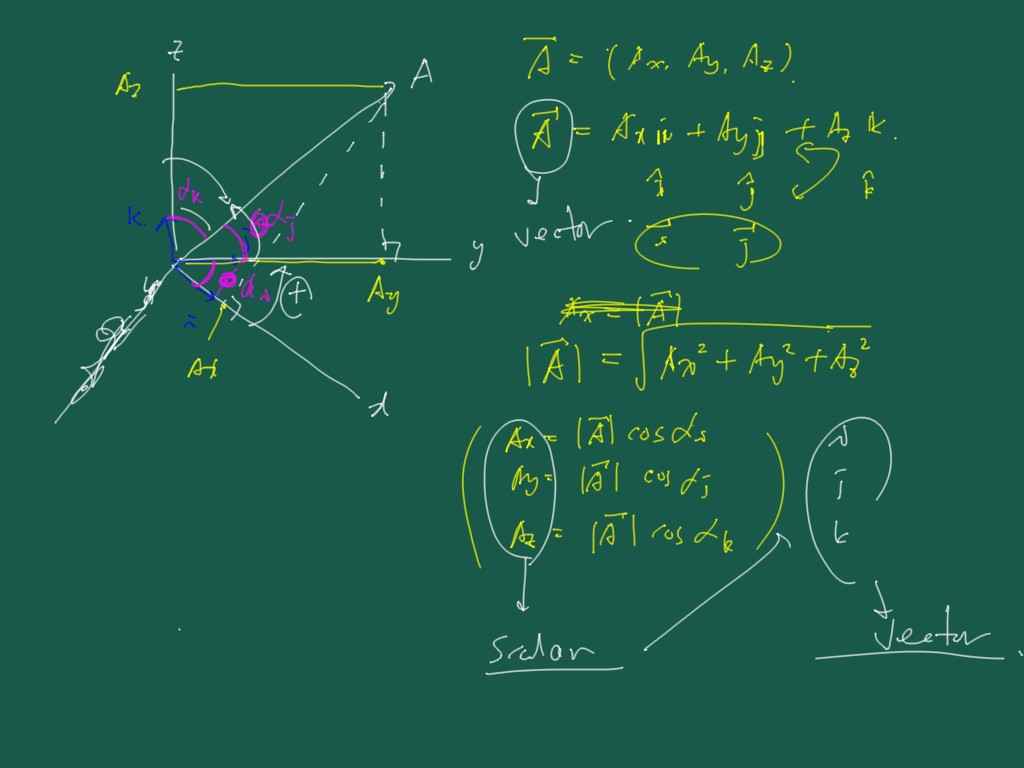 z
A
A_z
α_k
α_j
k
α_i
(+)
i
A_y
y
A_x
x
\vec{A} = (A_x, A_y, A_z).
\vec{A} = A_x i + A_y j + A_z k.
î ĵ k̂
vector
\vec{i} \vec{j}
A_x = |\vec{A}|
|\vec{A}| = √(A_x² + A_y² + A_z²)
A_x = |\vec{A}| cos α_i
A_y = |\vec{A}| cos α_j
A_z = |\vec{A}| cos α_k
i
j
k
scalar
vector